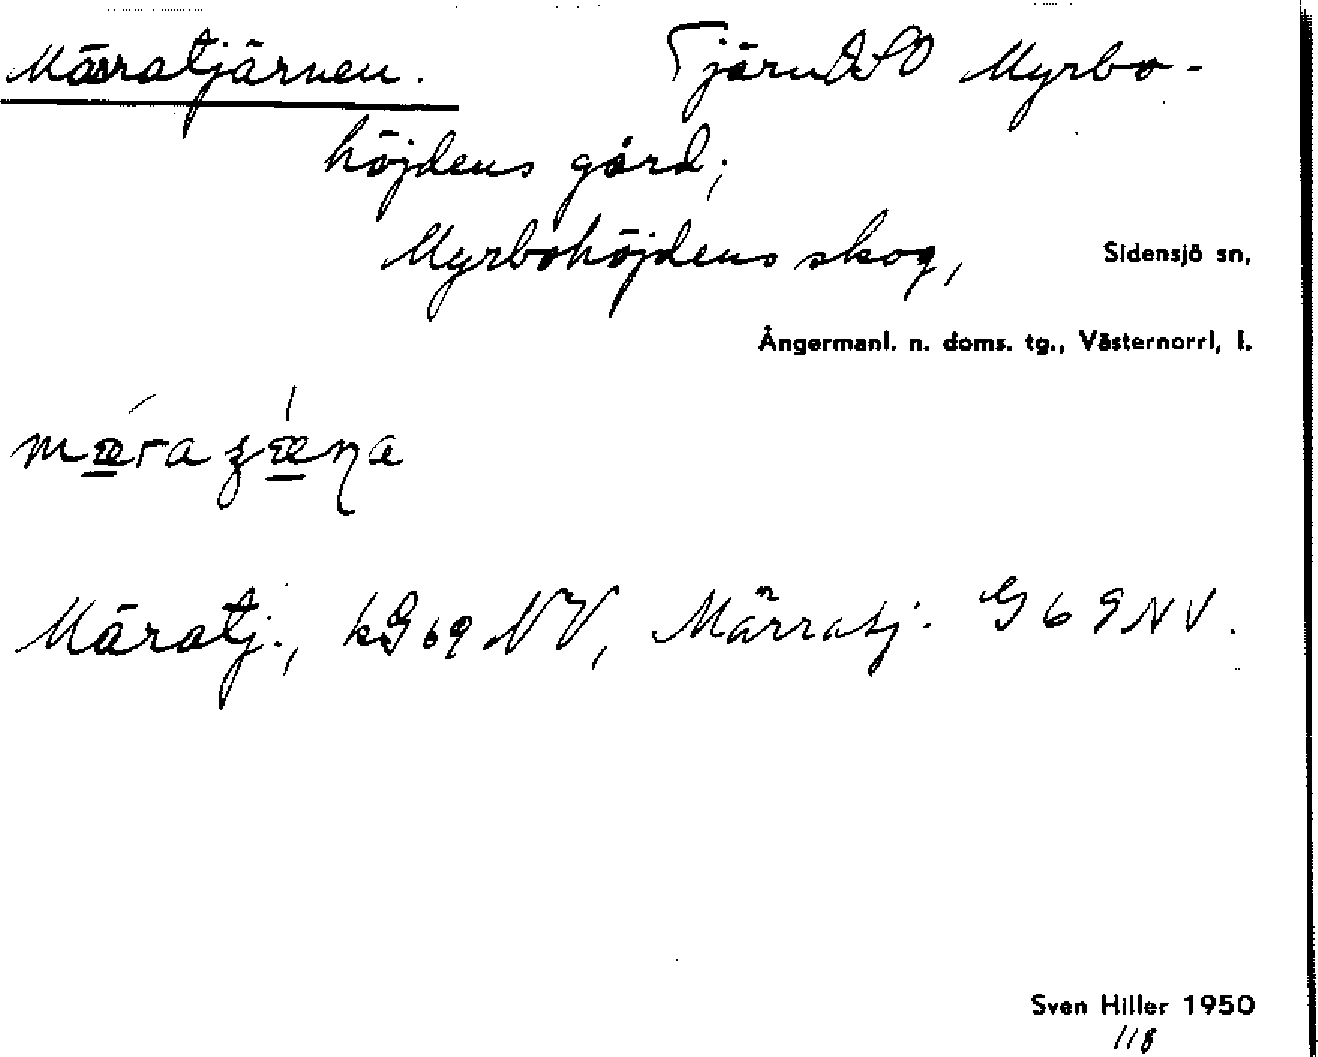 Märratjärnen. Tjärn OSO Myrbo-
höjdens gård;
Myrbohöjdens skog, Sidensjö sn,
Ångermanl. n. doms. tg., Västernorrl. l.
Märatj., kG 69 NV, Märratj. G 69 NV.
Sven Hiller 1950
118